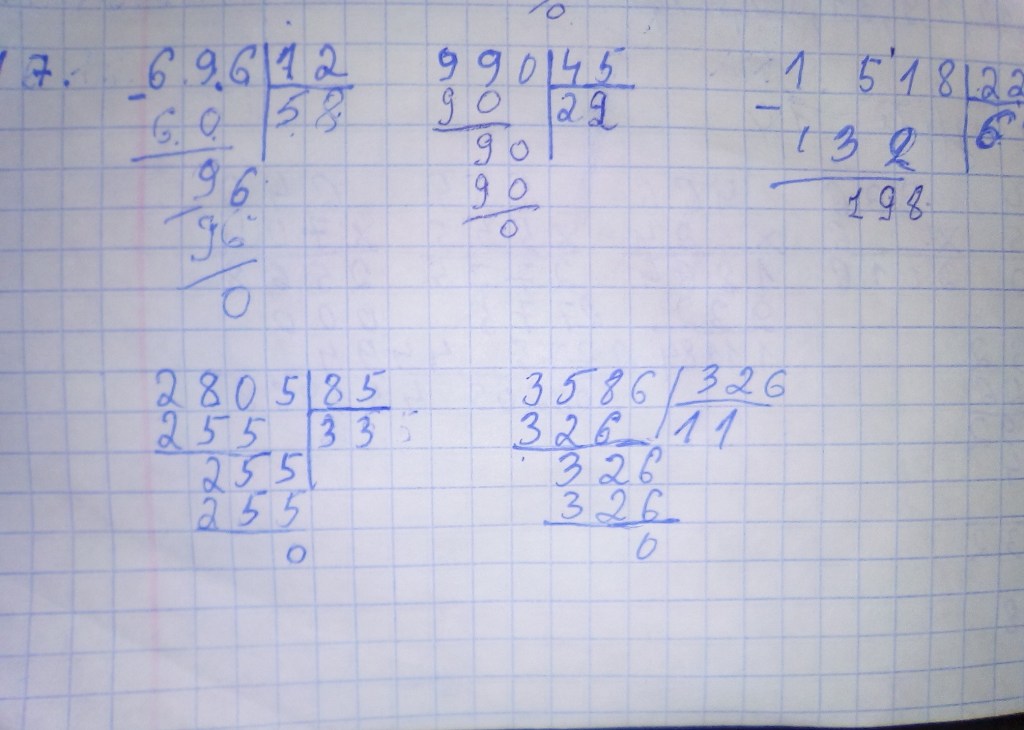 17.
696 | 12
- 60 | 58
96
96
0
990 | 45
90 | 22
90
90
0
1 518 | 22
- 132 | 6
198
2805 | 85
255 | 33
255
255
0
3586 | 326
326 | 11
326
326
0